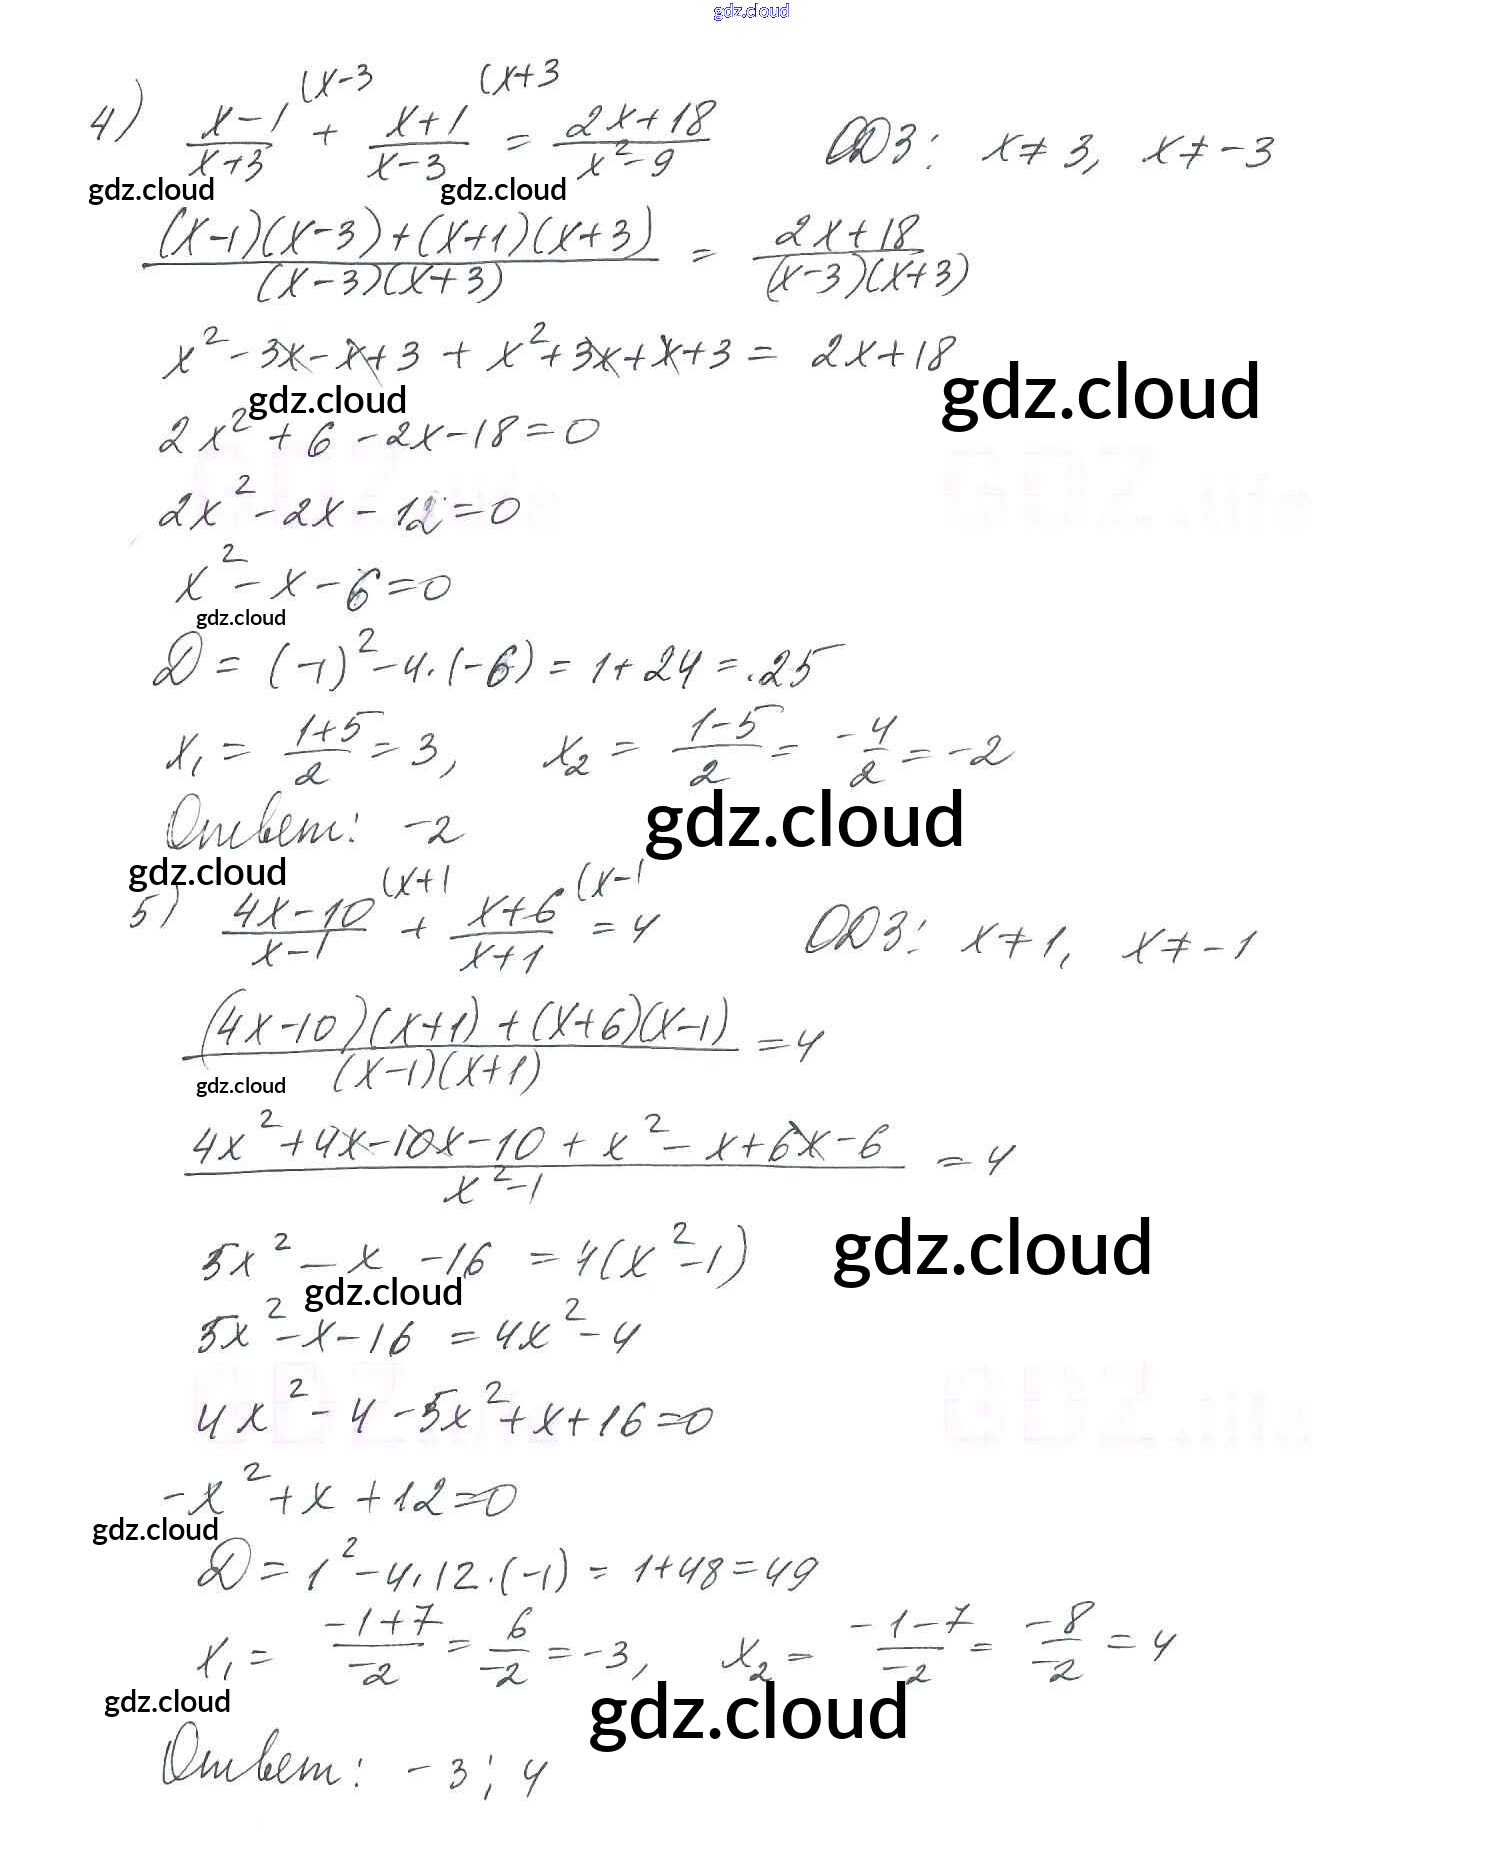 gdz.cloud
(x-3 (x+3
4) x-1/x+3 + x+1/x-3 = 2x+18/x²-9 ОДЗ: x≠3, x≠-3
gdz.cloud gdz.cloud
(x-1)(x-3)+(x+1)(x+3)/(x-3)(x+3) = 2x+18/(x-3)(x+3)
x²-3x-x+3+x²+3x+x+3= 2x+18
gdz.cloud gdz.cloud
2x²+6-2x-18=0
2x²-2x-12=0
x²-x-6=0
gdz.cloud
D=(-1)²-4·(-6)=1+24=.25
x₁= 1+5/2=3, x₂= 1-5/2= -4/2=-2
Ответ: -2
gdz.cloud gdz.cloud
(x+1 (x-1
5) 4x-10/x-1 + x+6/x+1 =4 ОДЗ: x≠1, x≠-1
(4x-10)(x+1)+(x+6)(x-1)/(x-1)(x+1) =4
gdz.cloud
4x²+4x-10x-10+x²-x+6x-6/x²-1 =4
5x²-x-16 =4(x²-1)
gdz.cloud gdz.cloud
5x²-x-16 =4x²-4
GDZ.life GDZ.life
4x²-4-5x²+x+16=0
-x²+x+12=0
gdz.cloud
D=1²-4·12·(-1)=1+48=49
x₁= -1+7/-2=6/-2=-3, x₂= -1-7/-2= -8/-2=4
gdz.cloud gdz.cloud
Ответ: -3; 4